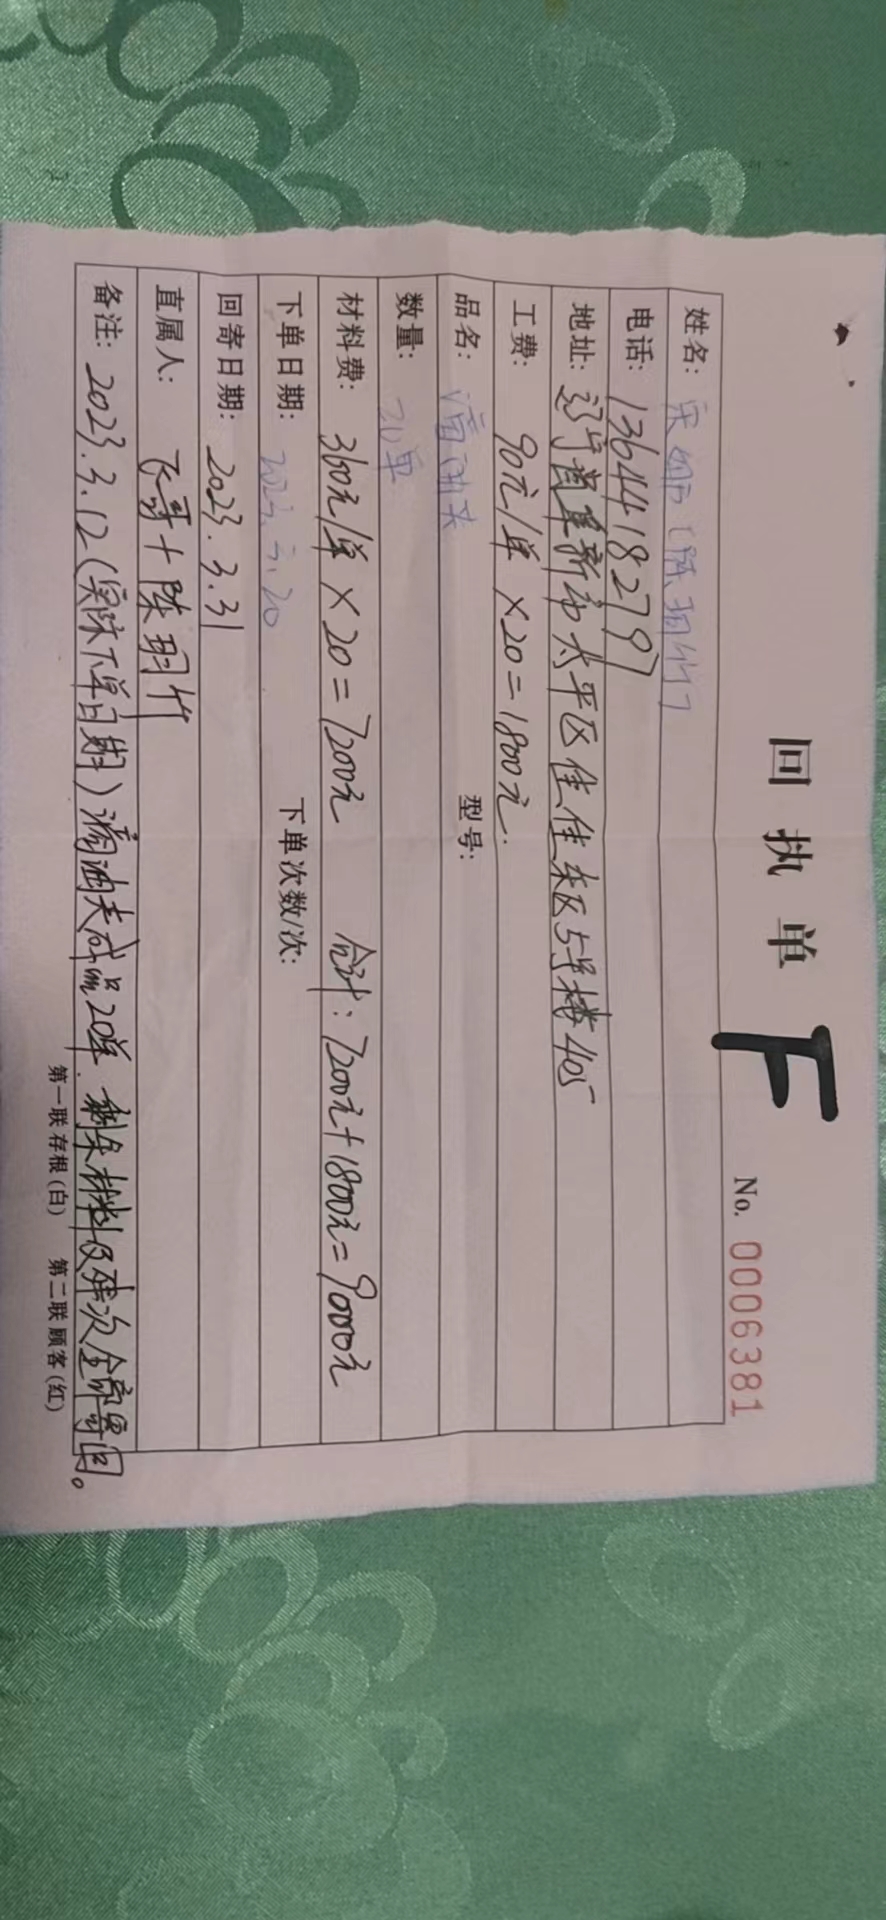 回执单
F
No. 0006381
姓名:
电话: 13644182797
地址: 辽宁省阜新市太平区佳佳东区5号楼405
工费: 90元/单 ×20=1800元.
品名: 滴油夹 型号:
数量: 20单
材料费: 360元/单 ×20=7200元 合计: 7200元+1800元=9000元
下单日期: 2023.3.20 下单次数/次:
回寄日期: 2023.3.31
直属人: 飞哥+陈玥竹
备注: 2023.3.12(实际下单日期)滴油夹成品20单.剩余材料及残次全部寄回。
第一联存根(白) 第二联顾客(红)